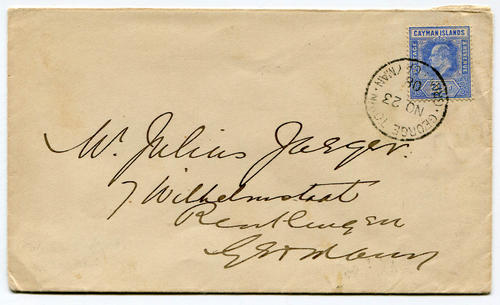 CAYMAN ISLANDS
POSTAGE
REVENUE
GEORGE TOWN
GRAND CAYMAN
NO 23
08
Mr. Julius Jaeger.
7 Wilhelmstaat
Reutlingen
Germany